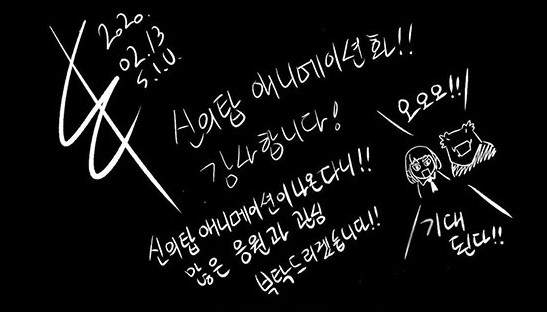 2020.
02.13
S.I.U.
신의탑 애니메이션화!!
감사합니다!
신의탑 애니메이션이 나온다니!!
많은 응원과 관심
부탁드리겠습니다!!
오오오!!
기대
된다!!